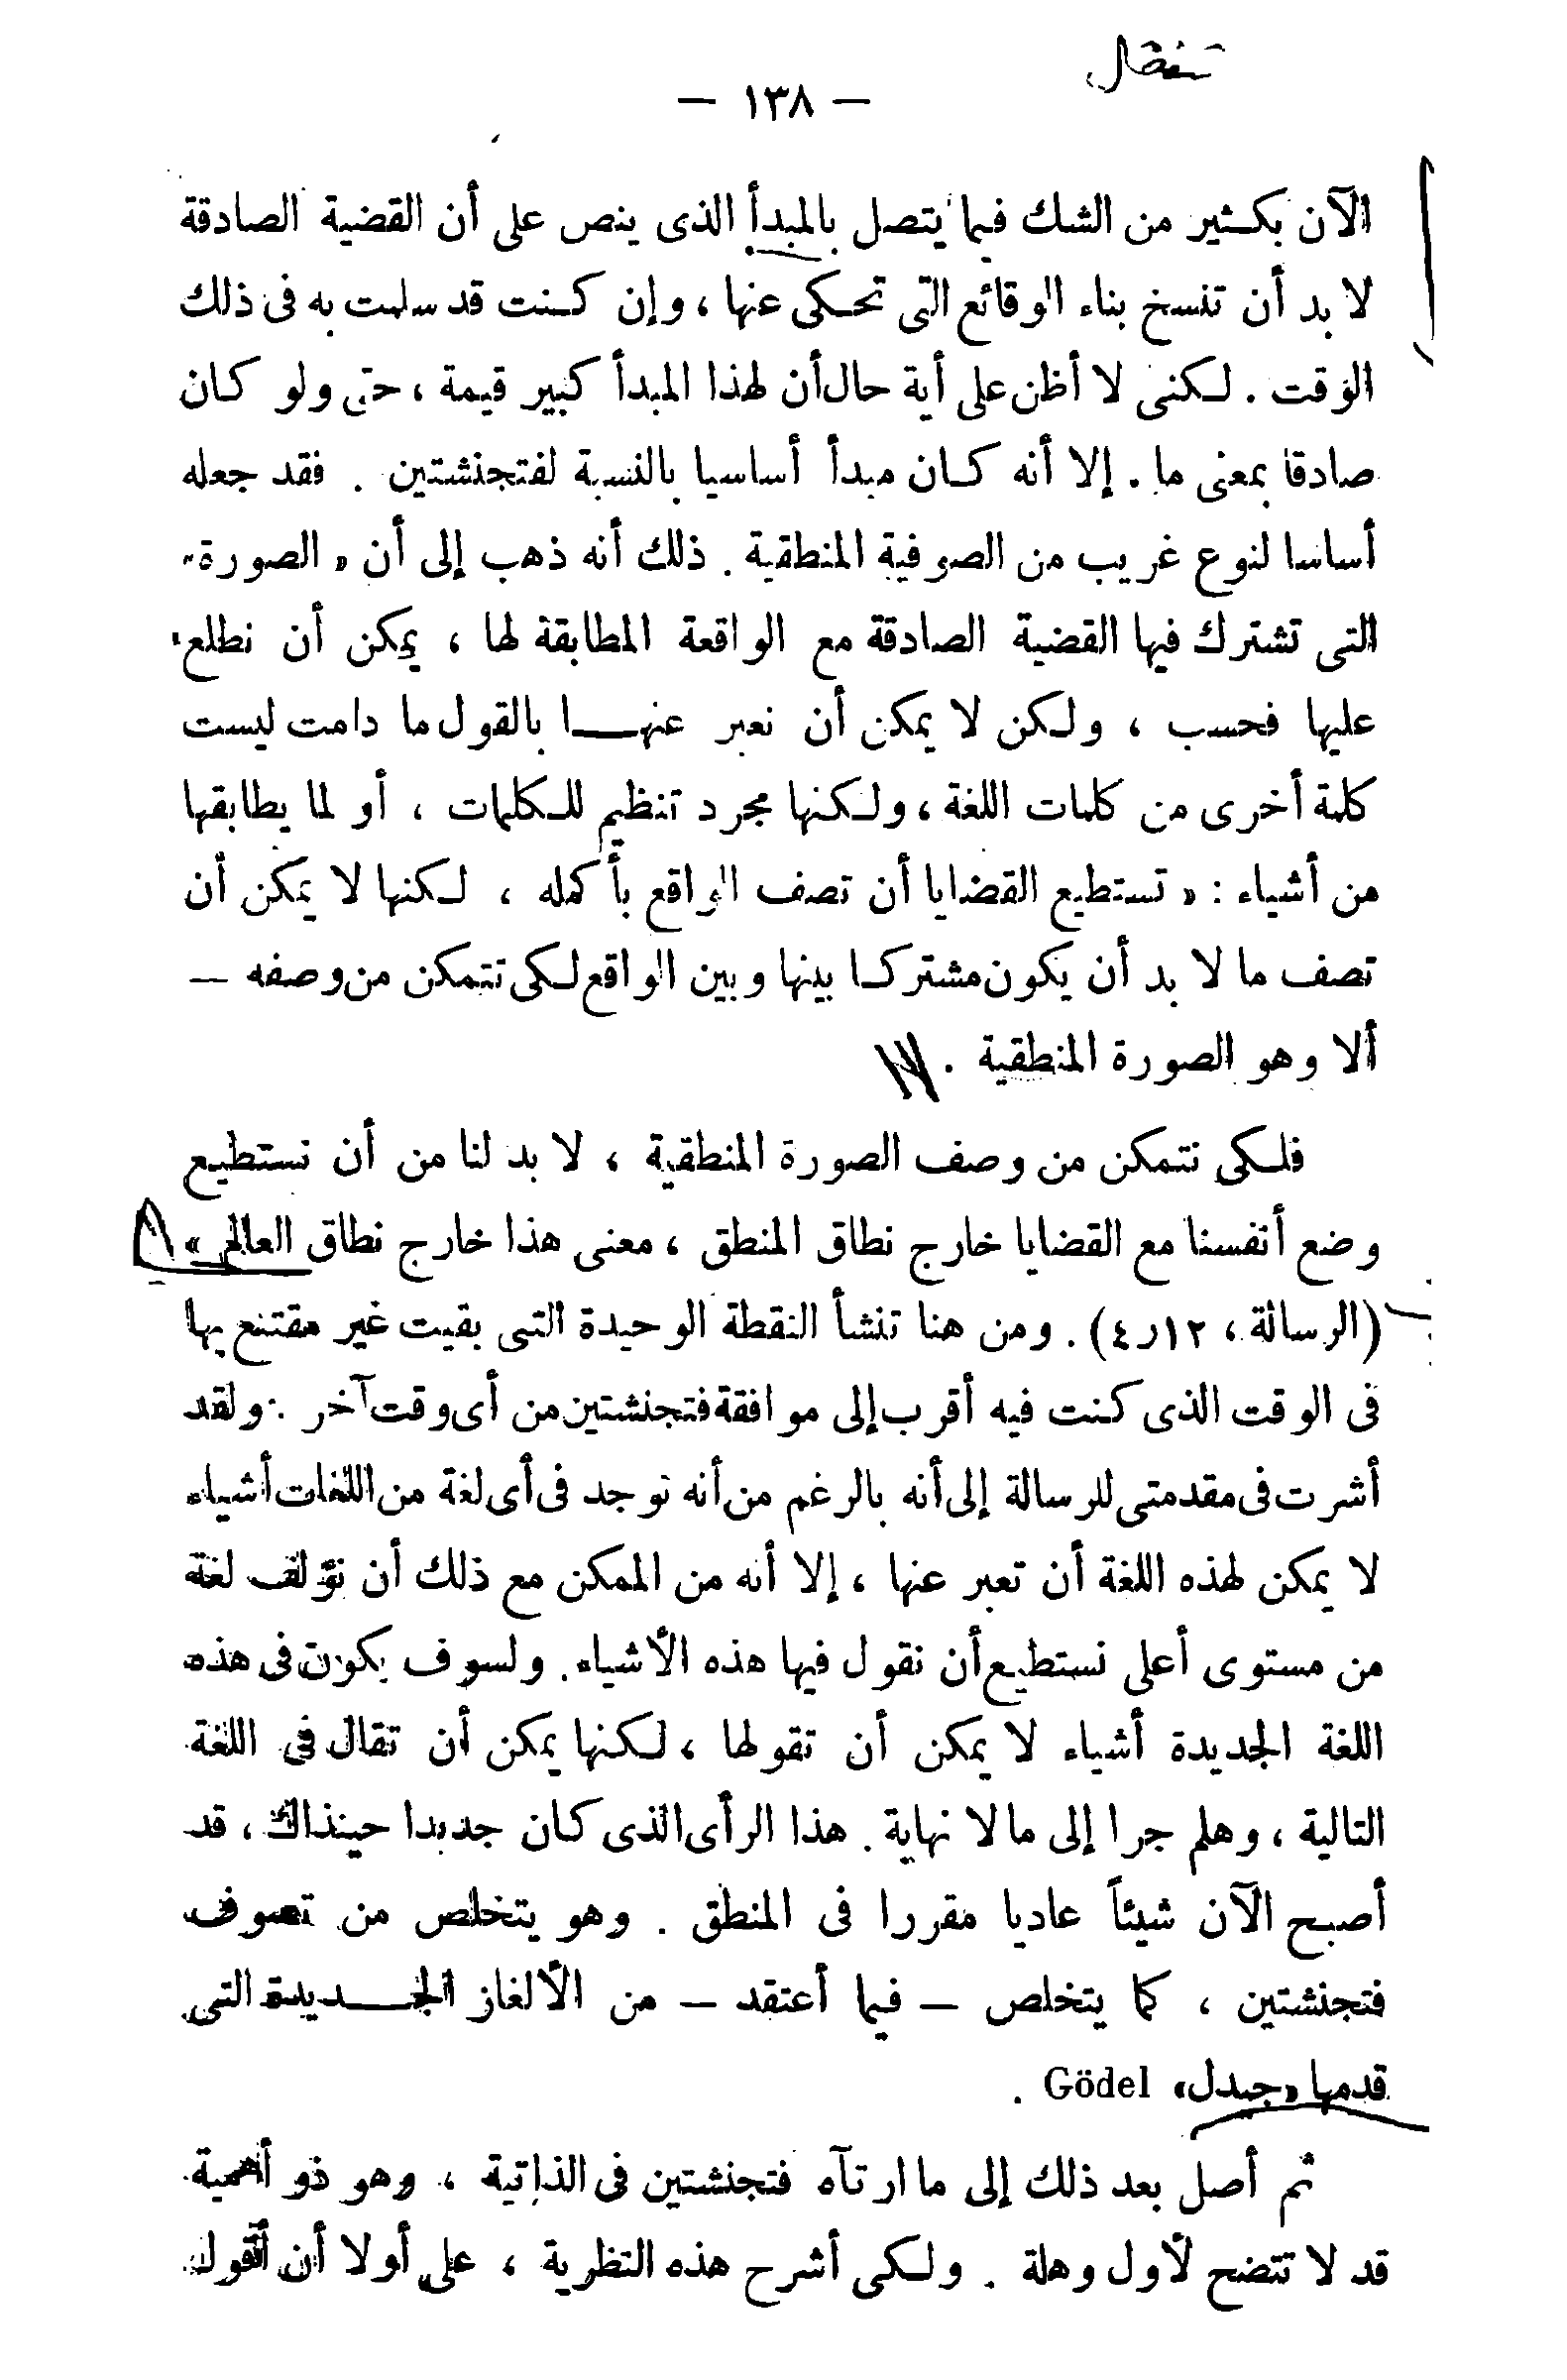 — ١٣٨ —
الآن بكثير من الشك فيما يتصل بالمبدأ الذى ينص على أن القضية الصادقة
لا بد أن تنسخ بناء الوقائع التى تحكى عنها ، وإن كنت قد سلمت به فى ذلك
الوقت . لكنى لا أظن على أية حال أن لهذا المبدأ كبير قيمة ، حتى ولو كان
صادقا بمعنى ما . إلا أنه كان مبدأ أساسيا بالنسبة لفتجنشتين . فقد جعله
أساسا لنوع غريب من الصوفية المنطقية . ذلك أنه ذهب إلى أن « الصورة»
التى تشترك فيها القضية الصادقة مع الواقعة المطابقة لها ، يمكن أن نطلع
عليها فحسب ، ولكن لا يمكن أن نعبر عنها بالقول ما دامت ليست
كلمة أخرى من كلمات اللغة ، ولكنها مجرد تنظيم للكلمات ، أو لما يطابقها
من أشياء : « تستطيع القضايا أن تصف الواقع بأكمله ، لكنها لا يمكن أن
تصف ما لا بد أن يكون مشتركا بينها وبين الواقع لكى تتمكن من وصفه —
ألا وهو الصورة المنطقية .
فلكى نتمكن من وصف الصورة المنطقية ، لا بد لنا من أن نستطيع
وضع أنفسنا مع القضايا خارج نطاق المنطق ، معنى هذا خارج نطاق العالم »
(الرسالة ، ١٢ر٤) . ومن هنا تنشأ النقطة الوحيدة التى بقيت غير مقتنع بها
فى الوقت الذى كنت فيه أقرب إلى موافقة فتجنشتين من أى وقت آخر . ولقد
أشرت فى مقدمتى للرسالة إلى أنه بالرغم من أنه توجد فى أى لغة من اللغات أشياء
لا يمكن لهذه اللغة أن تعبر عنها ، إلا أنه من الممكن مع ذلك أن نؤلف لغة
من مستوى أعلى نستطيع أن نقول فيها هذه الأشياء . ولسوف يكون فى هذه
اللغة الجديدة أشياء لا يمكن أن تقولها ، لكنها يمكن أن تقال فى اللغة
التالية ، وهلم جرا إلى ما لا نهاية . هذا الرأى الذى كان جديدا حينذاك ، قد
أصبح الآن شيئاً عاديا مقررا فى المنطق . وهو يتخلص من تصوف
فتجنشتين ، كما يتخلص — فيما أعتقد — من الألغاز الجديدة التى
قدمها «جيدل» Gödel .
ثم أصل بعد ذلك إلى ما ارتآه فتجنشتين فى الذاتية ، وهو ذو أهمية
قد لا تتضح لأول وهلة . ولكى أشرح هذه النظرية ، على أولا أن أقول